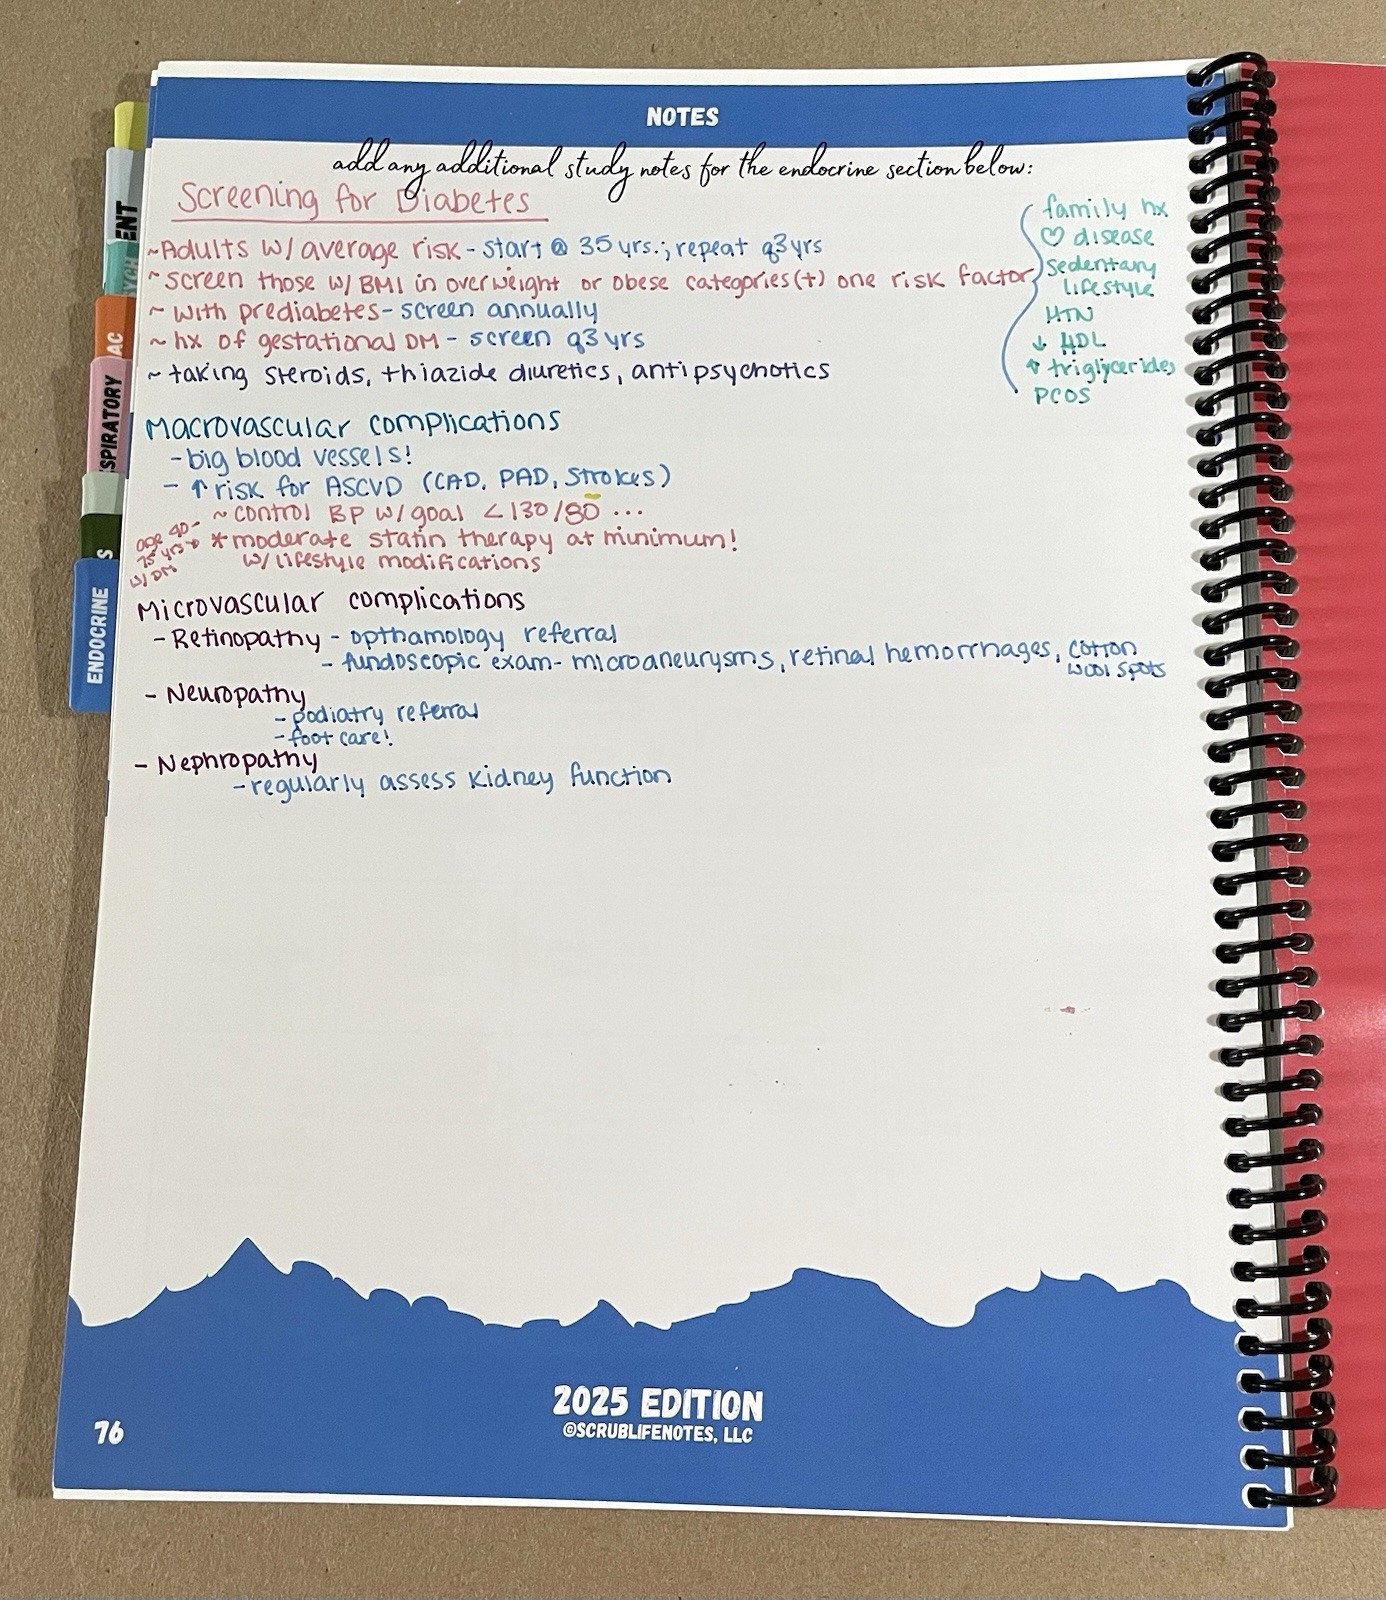 NOTES
add any additional study notes for the endocrine section below:
Screening for Diabetes
~Adults w/ average risk - start @ 35 yrs.; repeat q3yrs
~screen those w/ BMI in overweight or obese categories (+) one risk factor
family hx
♡ disease
sedentary
lifestyle
HTN
↓ HDL
↑ triglycerides
PCOS
~ with prediabetes - screen annually
~ hx of gestational DM - screen q3yrs
~ taking steroids, thiazide diuretics, antipsychotics
Macrovascular complications
- big blood vessels!
- ↑ risk for ASCVD (CAD, PAD, Strokes)
~ control BP w/ goal <130/80 ...
age 40-
75 yrs
w/ DM
→ * moderate statin therapy at minimum!
w/ lifestyle modifications
Microvascular complications
- Retinopathy - opthamology referral
- fundoscopic exam - microaneurysms, retinal hemorrhages, cotton
wool spots
- Neuropathy
- podiatry referral
- foot care!
- Nephropathy
- regularly assess kidney function
ENT
YCH
AC
SPIRATORY
S
ENDOCRINE
2025 EDITION
©SCRUBLIFENOTES, LLC
76